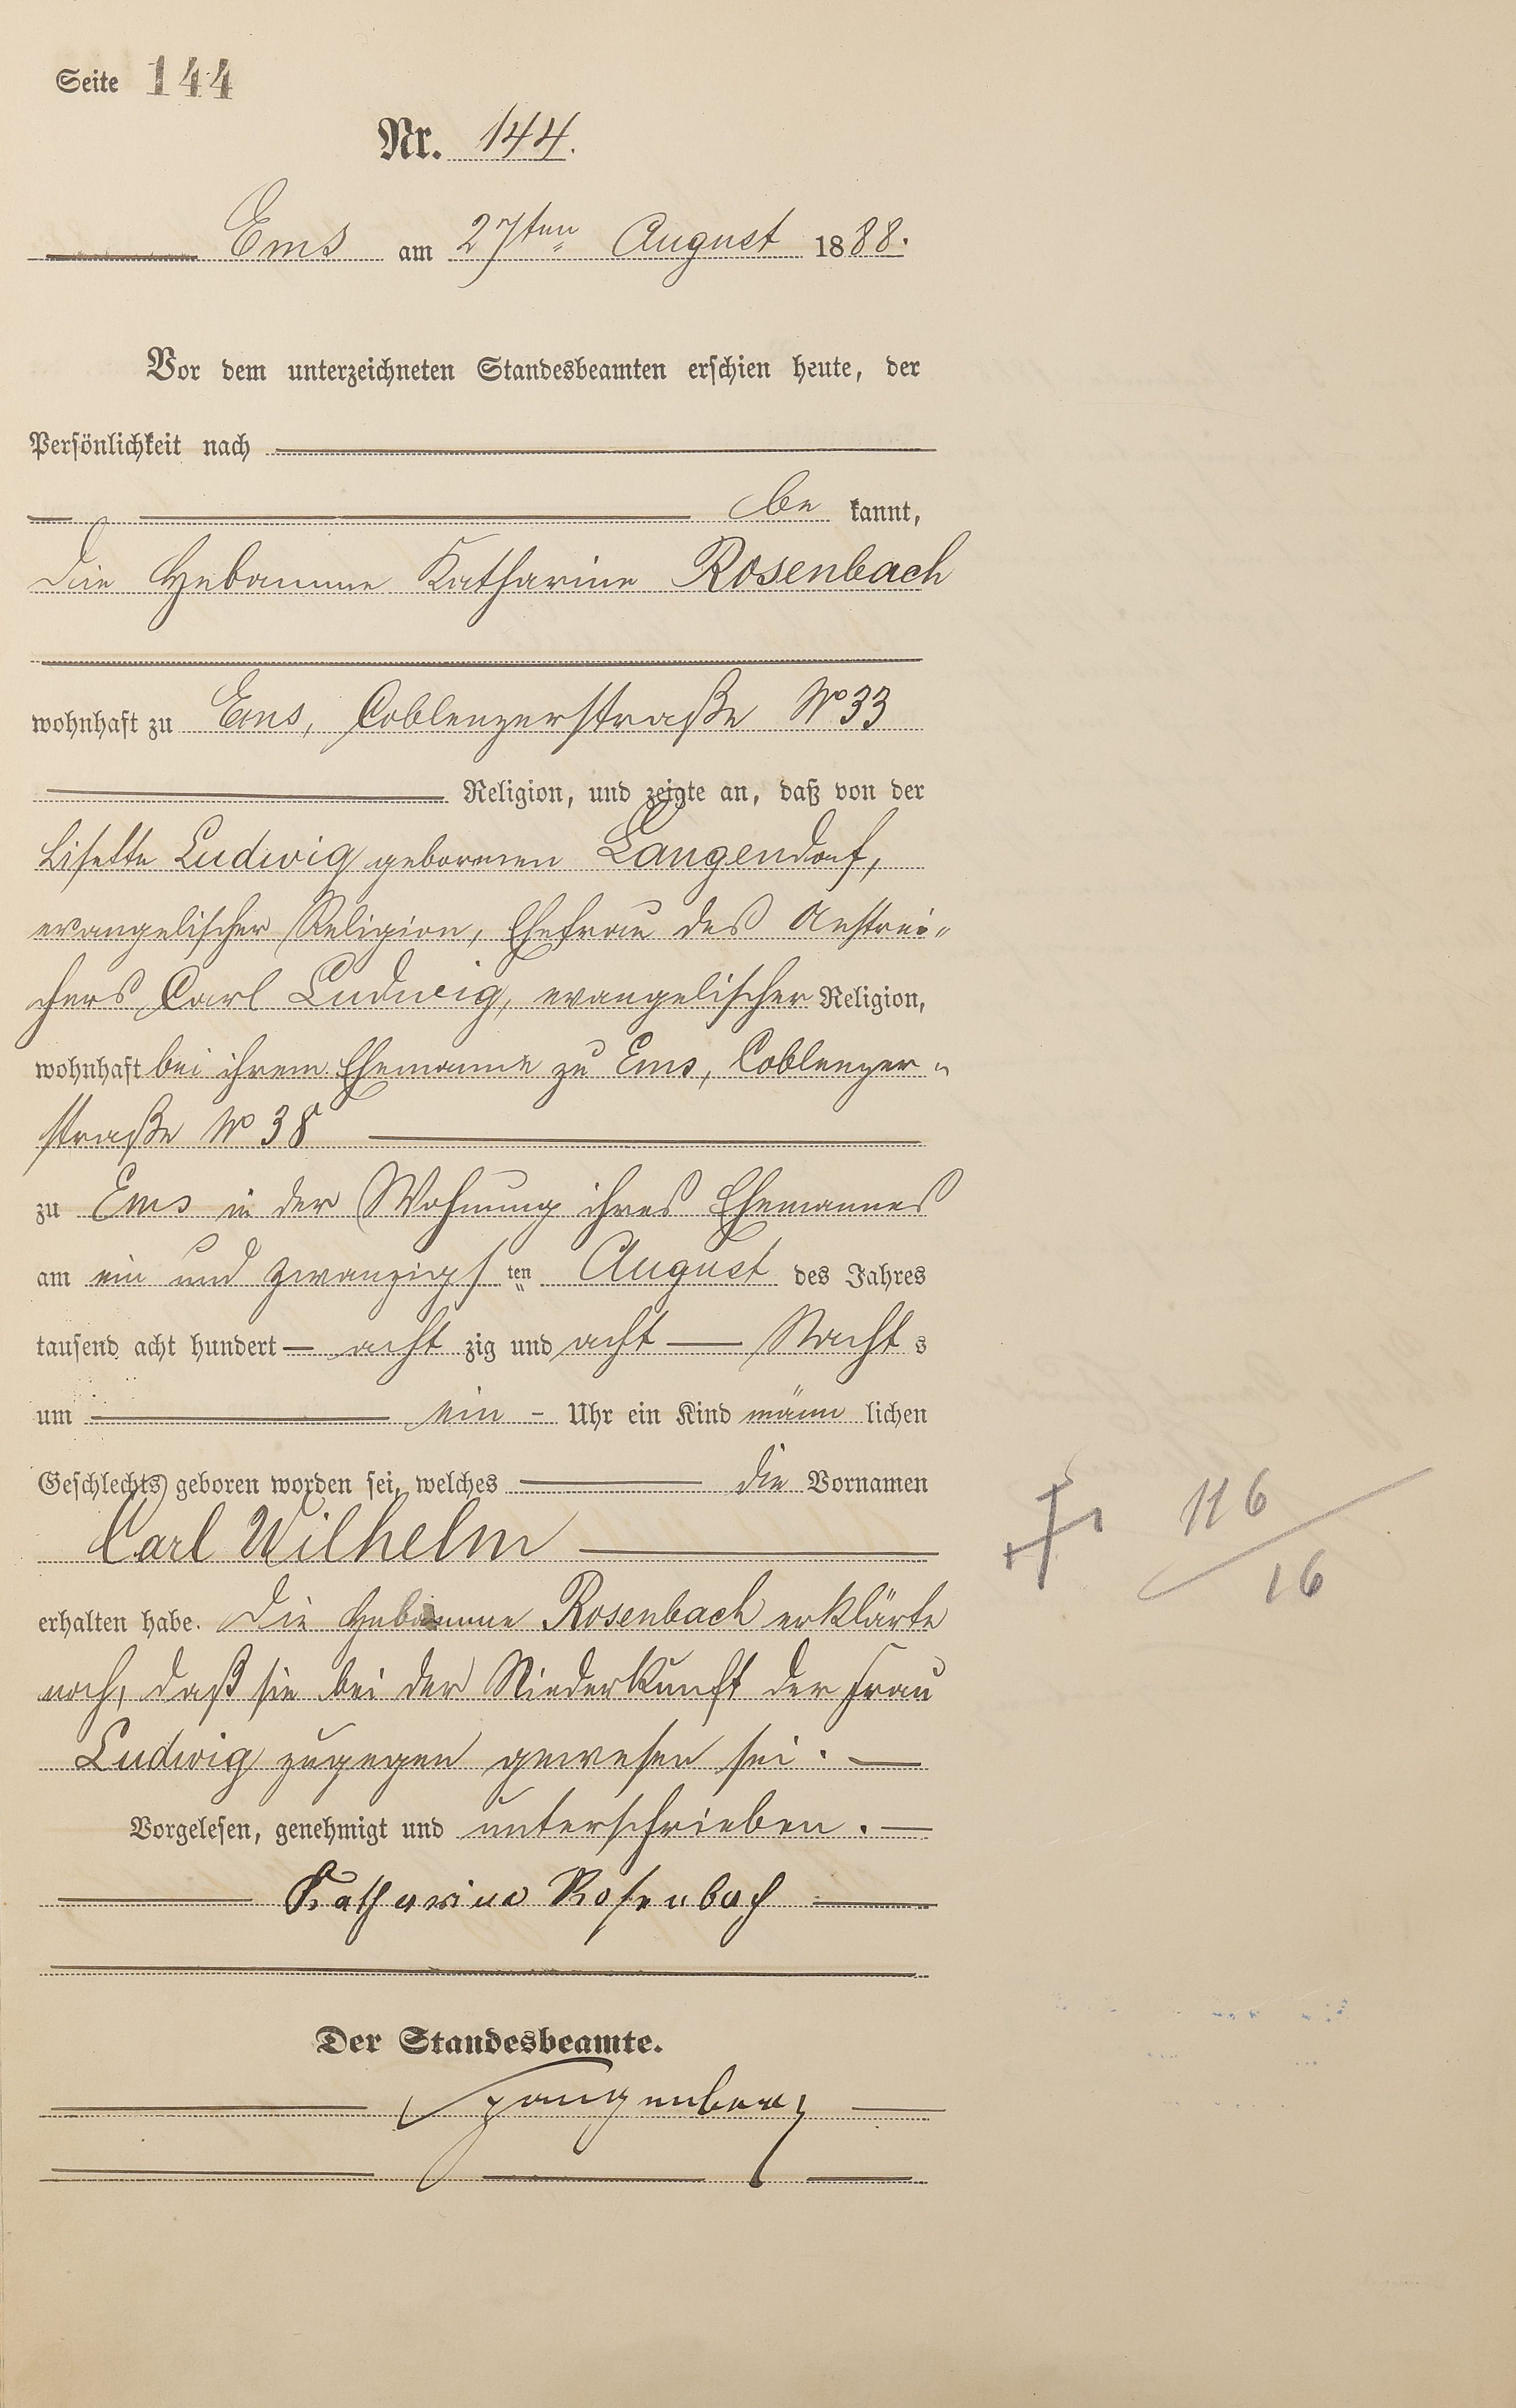 Seite 144
Nr. 144.
Ems am 27ten August 1888.
Vor dem unterzeichneten Standesbeamten erschien heute, der
Persönlichkeit nach
be kannt,
die Hebamme Katharine Rosenbach
wohnhaft zu Ems, Coblenzerstraße No 33
Religion, und zeigte an, daß von der
Lisette Ludwig geborenen Langendorf,
evangelischer Religion, Ehefrau des Anstrei„
chers Carl Ludwig, evangelischer Religion,
wohnhaft bei ihrem Ehemanne zu Ems, Coblenzer„
straße No 38
zu Ems in der Wohnung ihres Ehemannes
am ein und zwanzigsten August des Jahres
tausend acht hundert — acht zig und acht — Nacht s
um ein - Uhr ein Kind männ lichen
Geschlechts geboren worden sei, welches die Vornamen
Carl Wilhelm
erhalten habe. Die Hebamme Rosenbach erklärte
noch, daß sie bei der Niederkunft der Frau
Ludwig zugegen gewesen sei. —
Vorgelesen, genehmigt und unterschrieben. —
Katharina Rosenbach
Der Standesbeamte.
Spangenberg
† 116
16